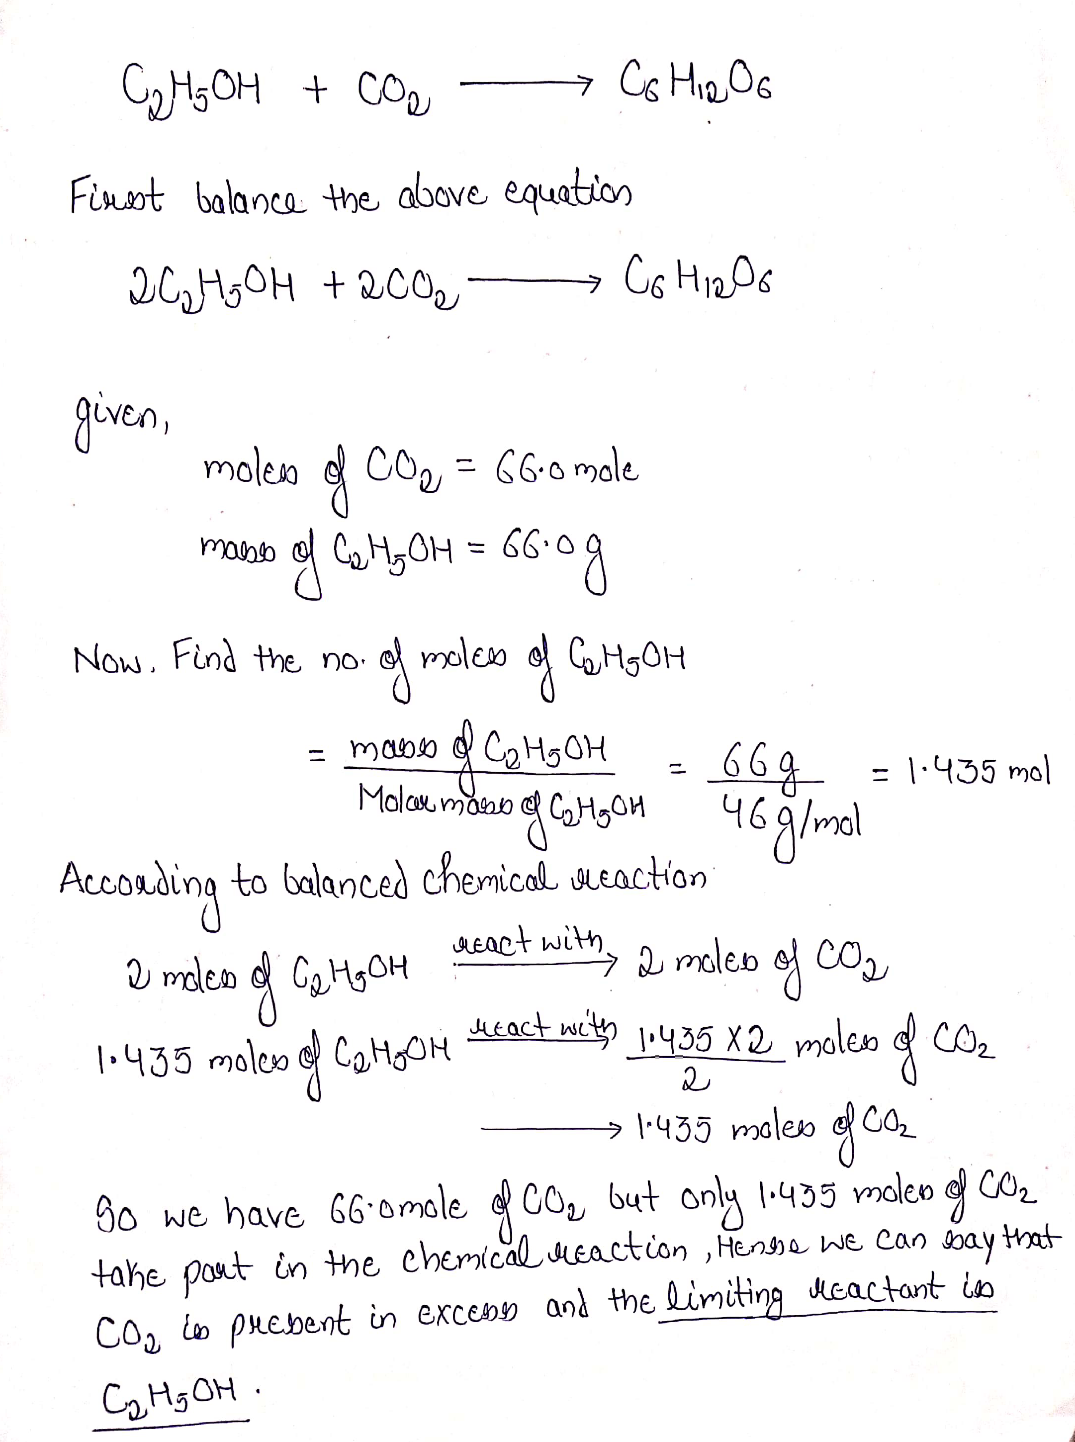 C₂H₅OH + CO₂ ⟶ C₆H₁₂O₆
First balance the above equation
2C₂H₅OH + 2CO₂ ⟶ C₆H₁₂O₆
given,
moles of CO₂ = 66.0 mole
mass of C₂H₅OH = 66.0 g
Now, Find the no. of moles of C₂H₅OH
= mass of C₂H₅OH / Molar mass of C₂H₅OH = 66g / 46 g/mol = 1.435 mol
According to balanced chemical reaction
2 moles of C₂H₅OH react with ⟶ 2 moles of CO₂
1.435 moles of C₂H₅OH react with ⟶ 1.435 X 2 / 2 moles of CO₂
⟶ 1.435 moles of CO₂
So we have 66.0 mole of CO₂ but only 1.435 moles of CO₂
take part in the chemical reaction, Hense we can say that
CO₂ is present in excess and the limiting reactant is
C₂H₅OH.